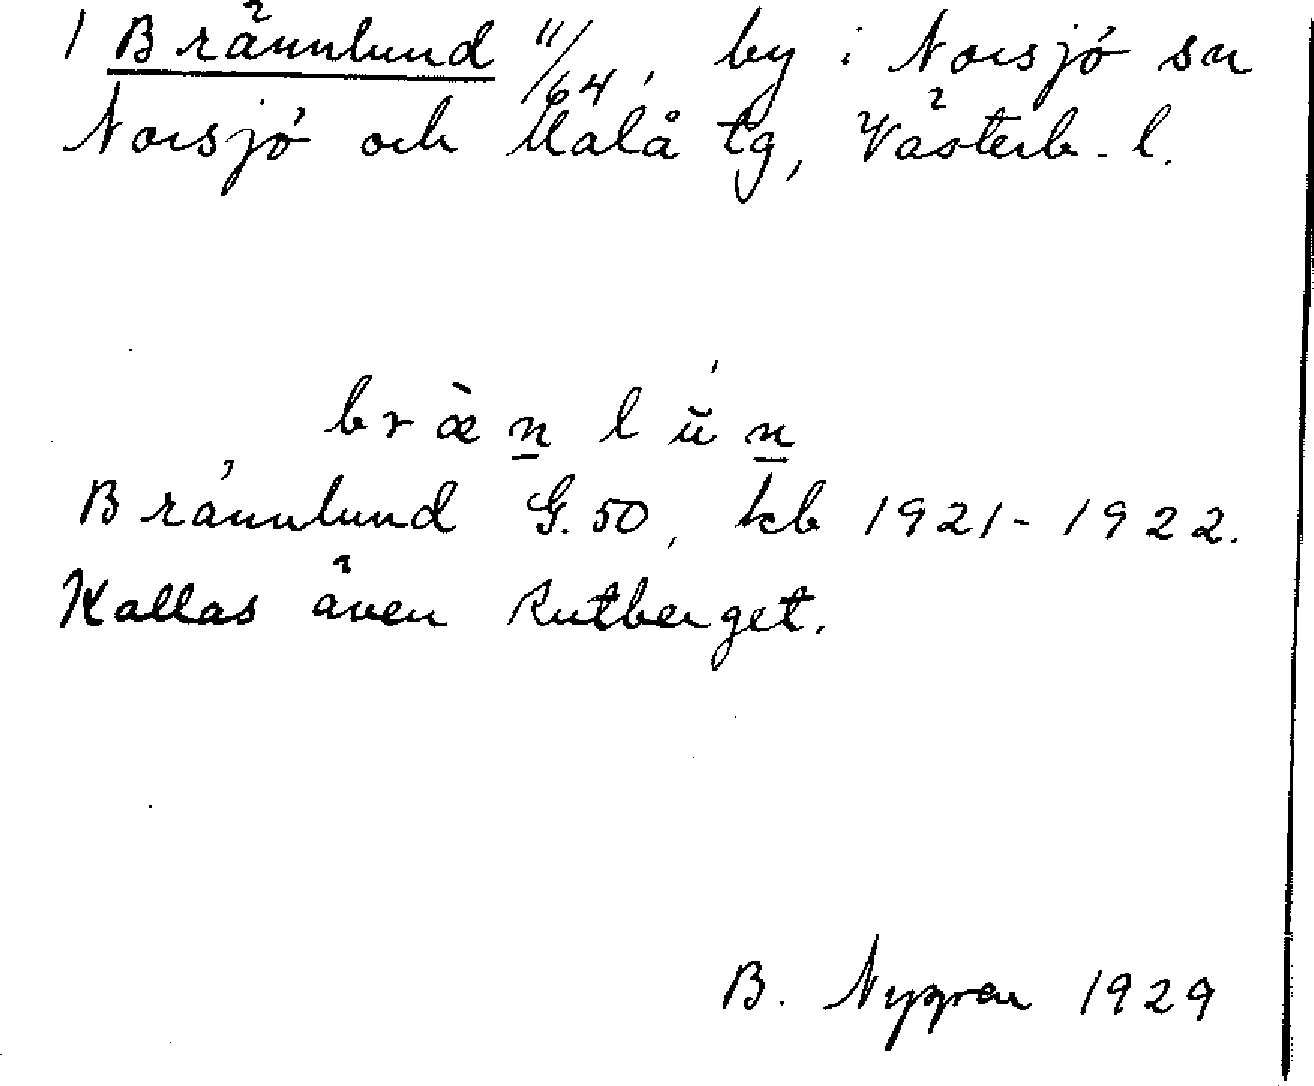 1 Brännlund 11/64, by i Norsjö sn
Norsjö och Malå tg, Västerb. l.
bræ̀n̲ lŭ́n̲
Brännlund G. 50, kb 1921-1922.
Kallas även Rutberget.
B. Nygren 1929